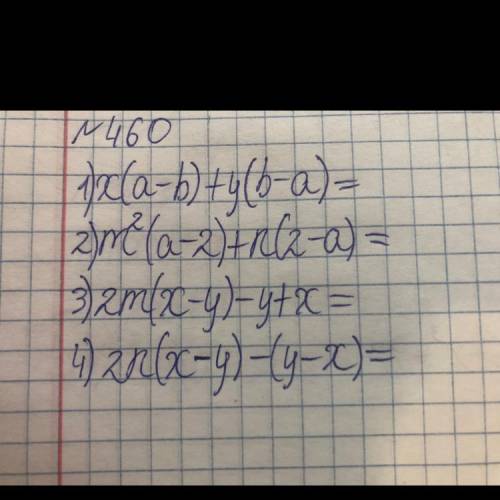 №460
1) x(a-b)+y(b-a)=
2) m²(a-2)+n(2-a)=
3) 2m(x-y)-y+x=
4) 2n(x-y)-(y-x)=